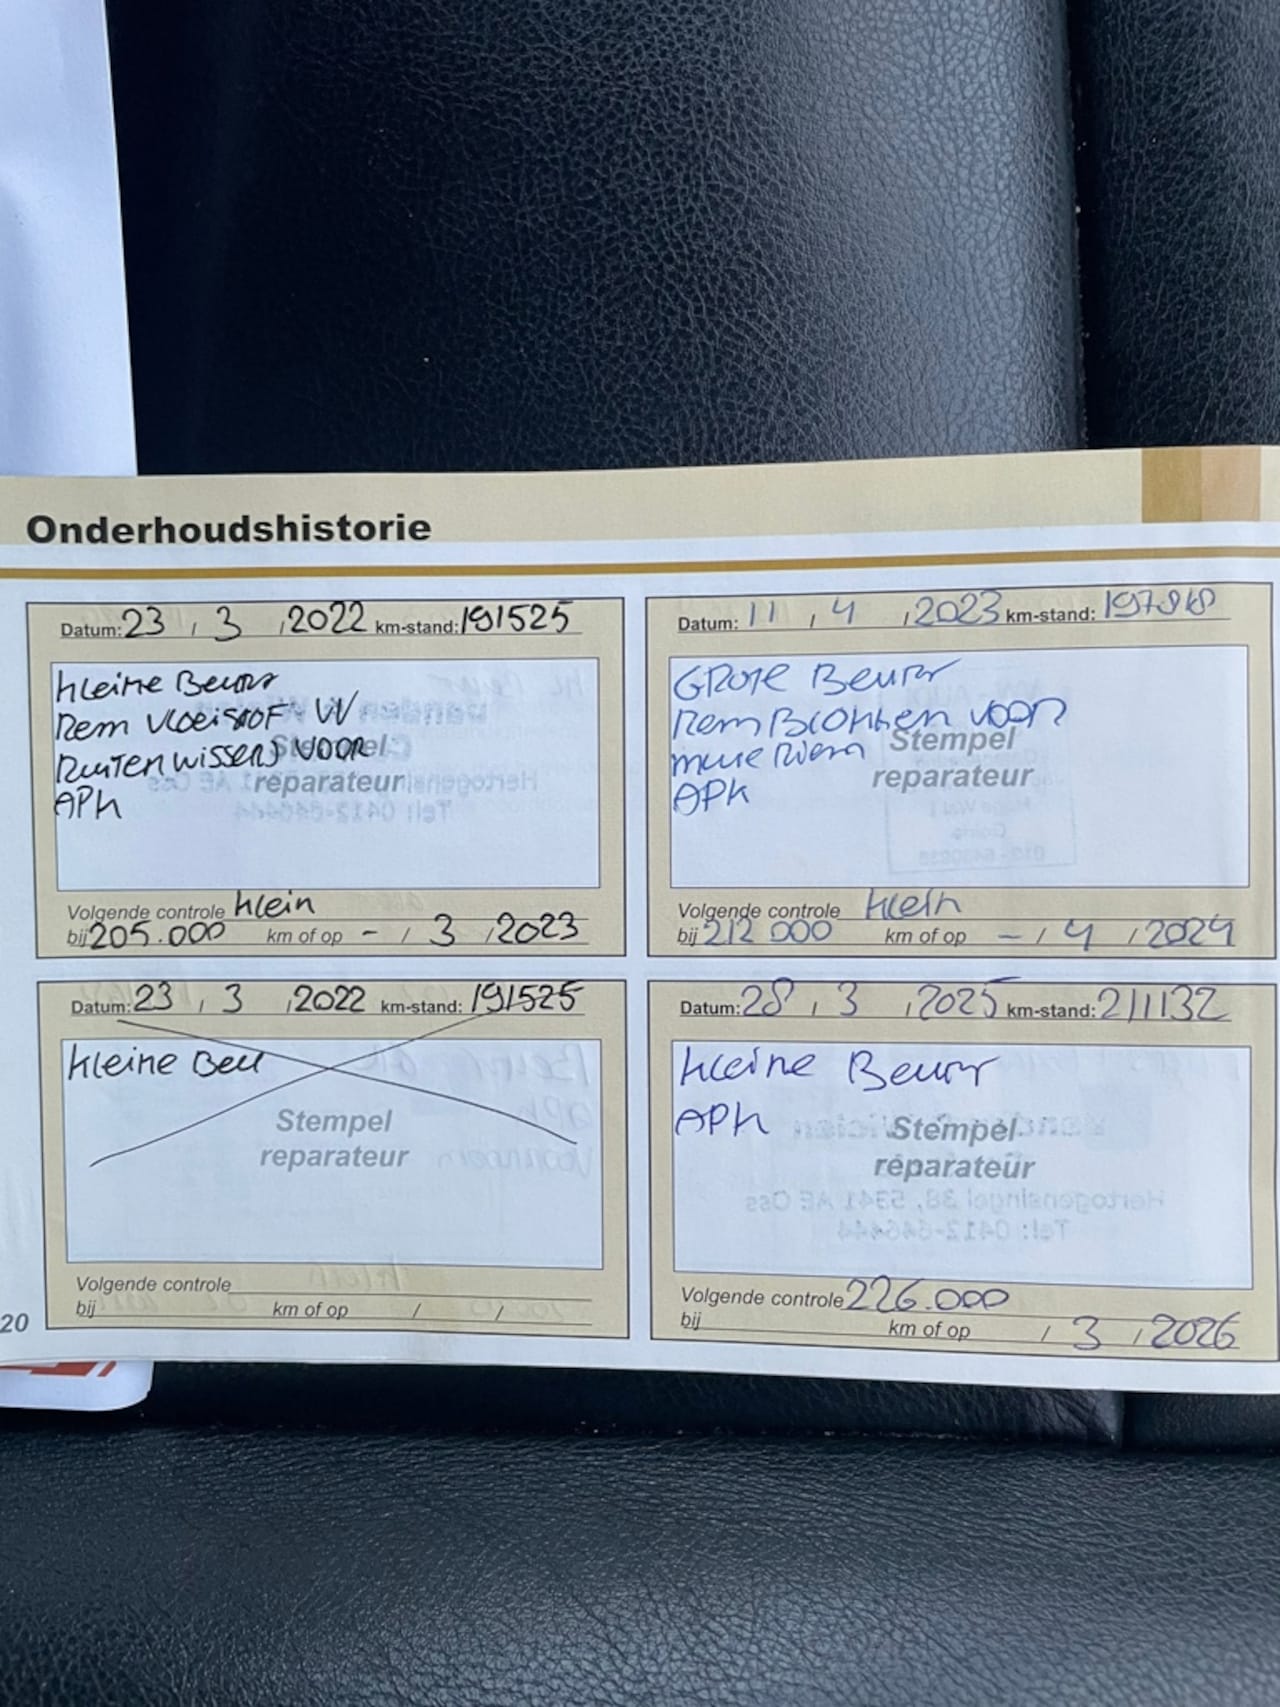 Onderhoudshistorie
Datum: 23 / 3 / 2022 km-stand: 191525
Kleine Beurt
Rem vloeistof VV
Ruitenwissers voor
APK
Stempel
reparateur
Volgende controle klein
bij 205.000 km of op - / 3 / 2023
Datum: 11 / 4 / 2023 km-stand:
Grote Beurt
RemBlokken voor
Riem
APK
Stempel
reparateur
Volgende controle klein
bij 212 000 km of op - / 4 / 2024
Datum: 23 / 3 / 2022 km-stand: 191525
Kleine Beu
Stempel
reparateur
Volgende controle
bij km of op / /
Datum: 28 / 3 / 2025 km-stand: 211132
Kleine Beurt
APK
Stempel
reparateur
Hertogensingel 38, 5341 AE Oss
Tel: 0412-646444
Volgende controle 226.000
bij km of op / 3 / 2026
20